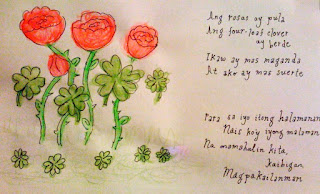 Ang rosas ay pula
Ang four-leaf clover
ay berde
Ikaw ay mas maganda
At ako ay mas suerte
Para sa iyo itong halamanan
Nais ko'y iyong malaman
Na mamahalin kita,
kaibigan
Magpakailanman